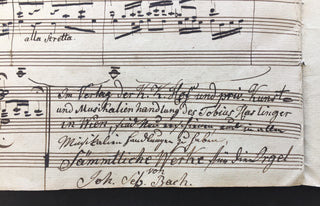 alla Stretta.
In Verlag der K. K. Hof und priv. Kunst-
und Musikalienhandlung des Tobias Haslinger
in Wien, und in allen
Musikalienhandlungen zu haben,
Sämmtliche Werke für die Orgel
von
Joh. Seb. Bach.